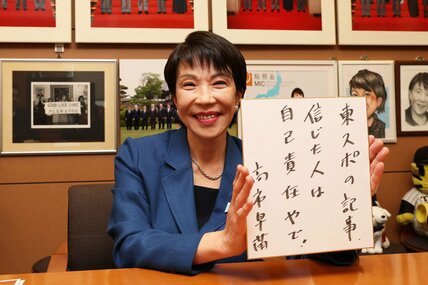 東スポの記事、
信じた人は
自己責任やで!
高市早苗
総務省
MIC